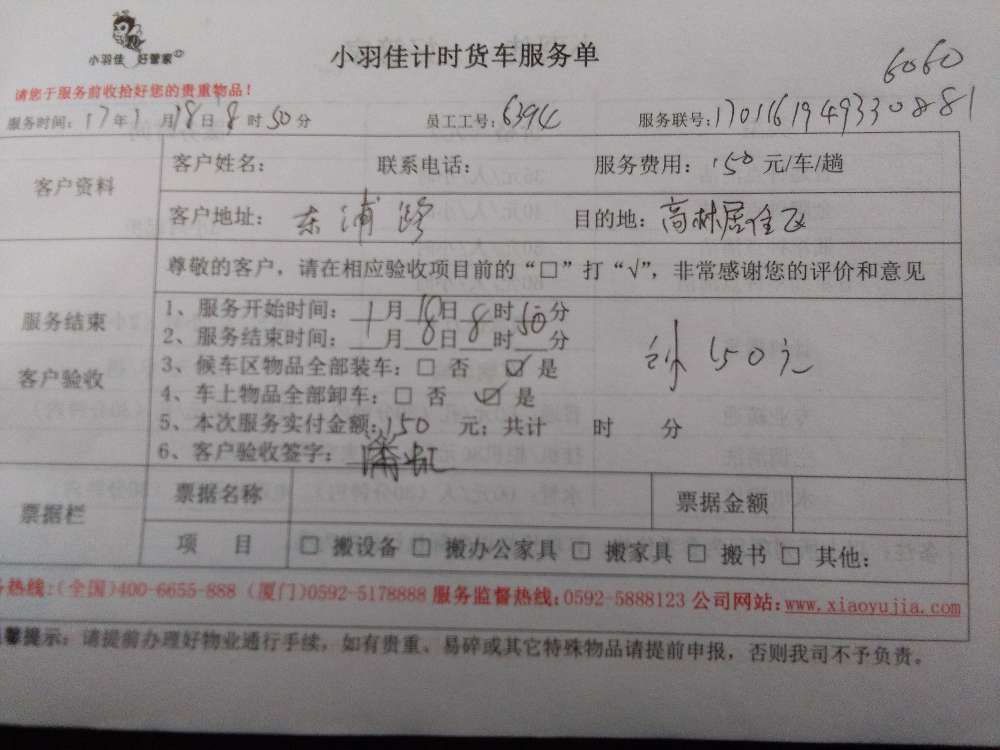 小羽佳 好管家
小羽佳计时货车服务单
6060
请您于服务前收拾好您的贵重物品!
服务时间: 17年1月18日8时50分 员工工号: 6394 服务联号: 17011619493308881
客户资料
客户姓名: 联系电话: 服务费用: 150 元/车/趟
客户地址: 东浦路 目的地: 高林居住区
尊敬的客户,请在相应验收项目前的“□”打“√”,非常感谢您的评价和意见
服务结束
客户验收
1、服务开始时间: 1月18日8时50分
2、服务结束时间: 月 日 时 分
3、候车区物品全部装车: □ 否 ☑ 是
4、车上物品全部卸车: □ 否 ☑ 是
150元
5、本次服务实付金额: 150 元; 共计 时 分
6、客户验收签字:
票据栏
票据名称 票据金额
项 目 □ 搬设备 □ 搬办公家具 □ 搬家具 □ 搬书 □ 其他:
热线:(全国)400-6655-888 (厦门)0592-5178888 服务监督热线:0592-5888123 公司网站:www.xiaoyujia.com
馨提示: 请提前办理好物业通行手续,如有贵重、易碎或其它特殊物品请提前申报,否则我司不予负责。